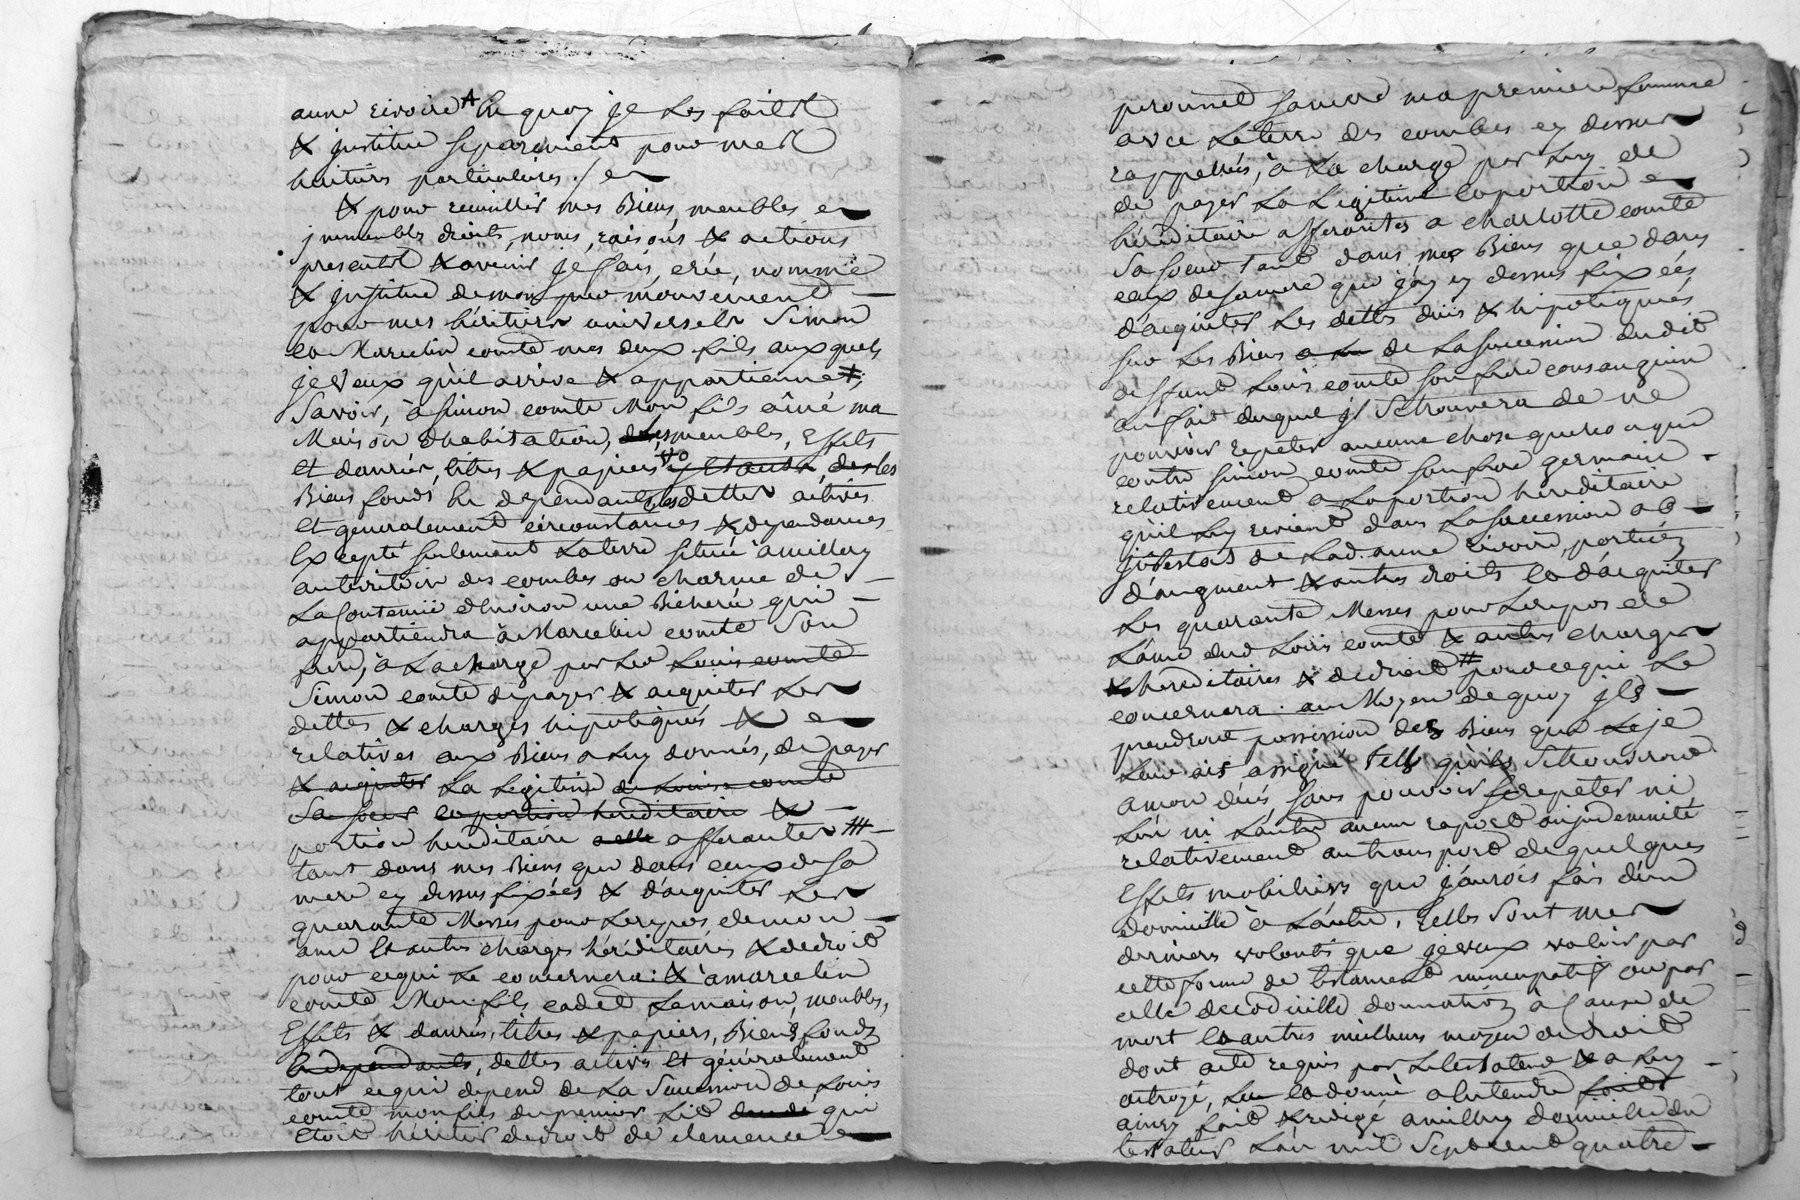 anne rivoire A En quoy je Les faits
& institue séparément pour mes
heritiers particuliers ./ et
& pour recueillir mes Biens, meubles et
jmmeubles droits, noms, raisons & actions
presents & avenir je fais, crée, nomme
& jnstitue de mon pur mouvement
pour mes héritiers universels Simon
et Marcelin comte mes deux fils auxquels
je veux qu'il arrive & appartienne #,
Savoir, à simon comte Mon fils aîné ma
Maison d'habitation, des meubles, Effets
Et danrées, titres & papiers y Etants des les
Biens fonds En dépendants, Les dettes actives
Et generalement circonstances & dependances
Excepté seulement La terre située à millery
au territoire des combes ou charme de
La Contenüe d'Environ une Bicherée qui
appartiendra à Marcelin comte Son
frere, à La charge par Led Louis comte
Simon comte de payer & acquiter Les
dettes & charges hipotiquées & et
relatives aux Biens a Luy donnés, de payer
& acquiter La Légitime de Louise comte
Sa soeur et portion hereditaire &
portion hereditaire a elle afferantes #
tant dans mes Biens que dans ceux de sa
mere cy dessus fixées & d'acquiter Les
quarante Messes pour Le repos de mon
ame Et autres charges héréditaires & de droit
pour ce qui Le concernera: & à marcelin
comte Mon fils cadet La maison, meubles,
Effets & danrées, titres & papiers, Biens fonds
En dependants, dettes actives Et généralement
tout ce qui depend de La Succession de Louis
comte mon fils du premier Lit qui
Etoit héritier de droit de clemence
peronnet sa mere ma premiere femme
avec La terre des combes cy dessus
rappellées, à La charge par Luy de
de payer La Légitime et portion
héréditaire afferantes a charlotte comte
Sa soeur tant dans mes Biens que dans
ceux de sa mere que j'ay cy dessus fixées
d'acquiter Les dettes dües & hipotiquées
sur Les Biens de La succession dudit
deffunt Louis comte son frere consanguin
au fait duquel jl se trouvera de ne
pouvoir repeter aucune chose quelconque
contre simon comte son frere germain
relativement a La portion hereditaire
qu'il Luy revient dans La succession ab
jntestat de Lad. anne rivoire, portion
d'augment & autres droits et d'acquiter
Les quarante Messes pour Le repos de
L'ame dud Louis comte & autres charges
& hereditaires & de droit # pour ce qui Le
concernera. au Moyen de quoy jls
prendront possession des Biens que Le je
Leur ais assigné tels qu'ils se trouveront
a mon décés, sans pouvoir se repeter ni
L'un ni L'autre aucun raport ou jndemnité
relativement au transport de quelques
Effets mobiliers que j'aurois fais d'un
domicille à L'autre, telles Sont mes
dernieres volontés que je veux valoir par
cette forme de testament nuncupatif ou par
celle de codicille donnation a Cause de
mort et autres meilleurs moyen de droit
dont acte requis par Le testateur & a Luy
octroyé, Lu et donné a Entendre
ainsy fait & redigé a millery domicille du
testateur L'an mil Sept cent quatre